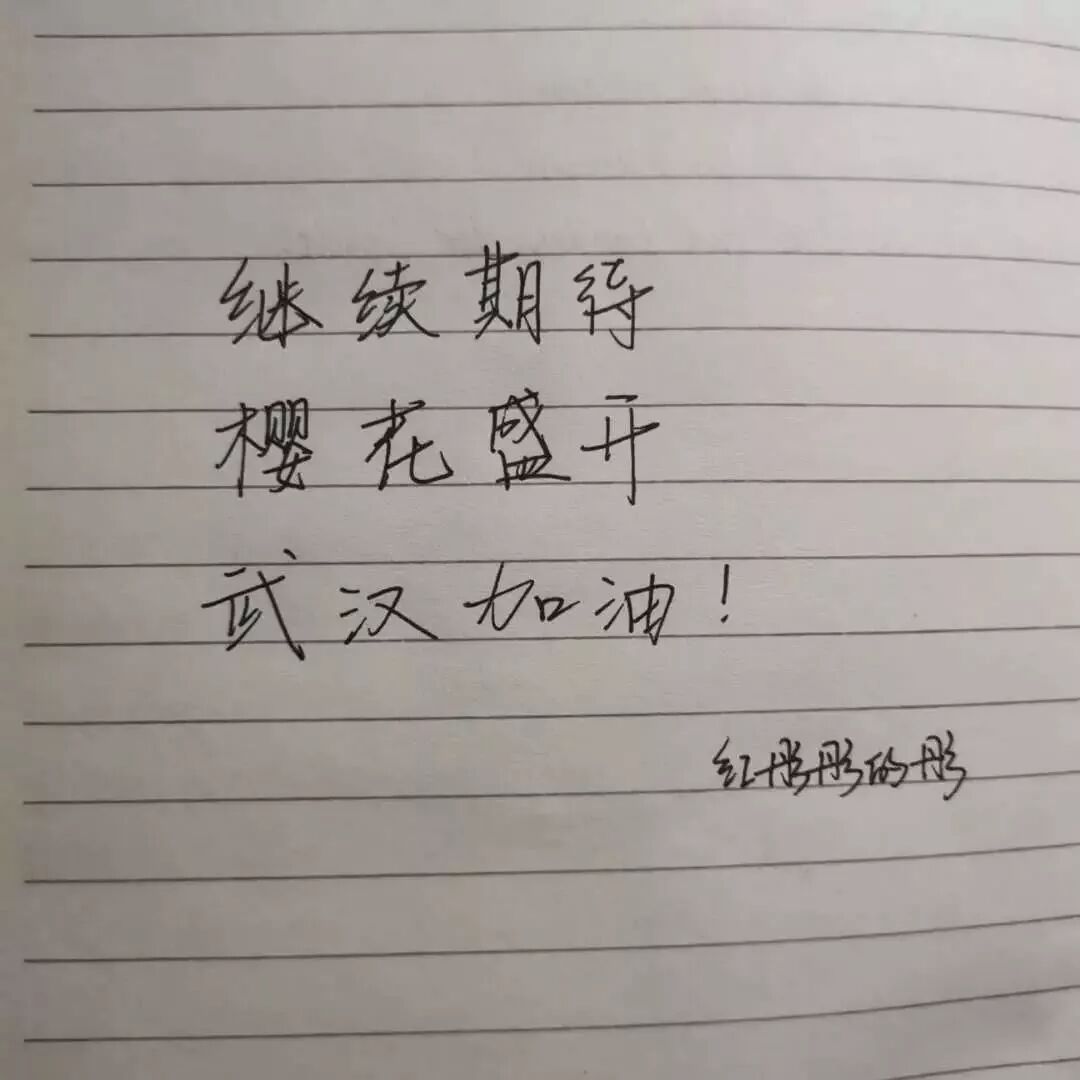 继续期待
樱花盛开
武汉加油!
红彤彤的彤